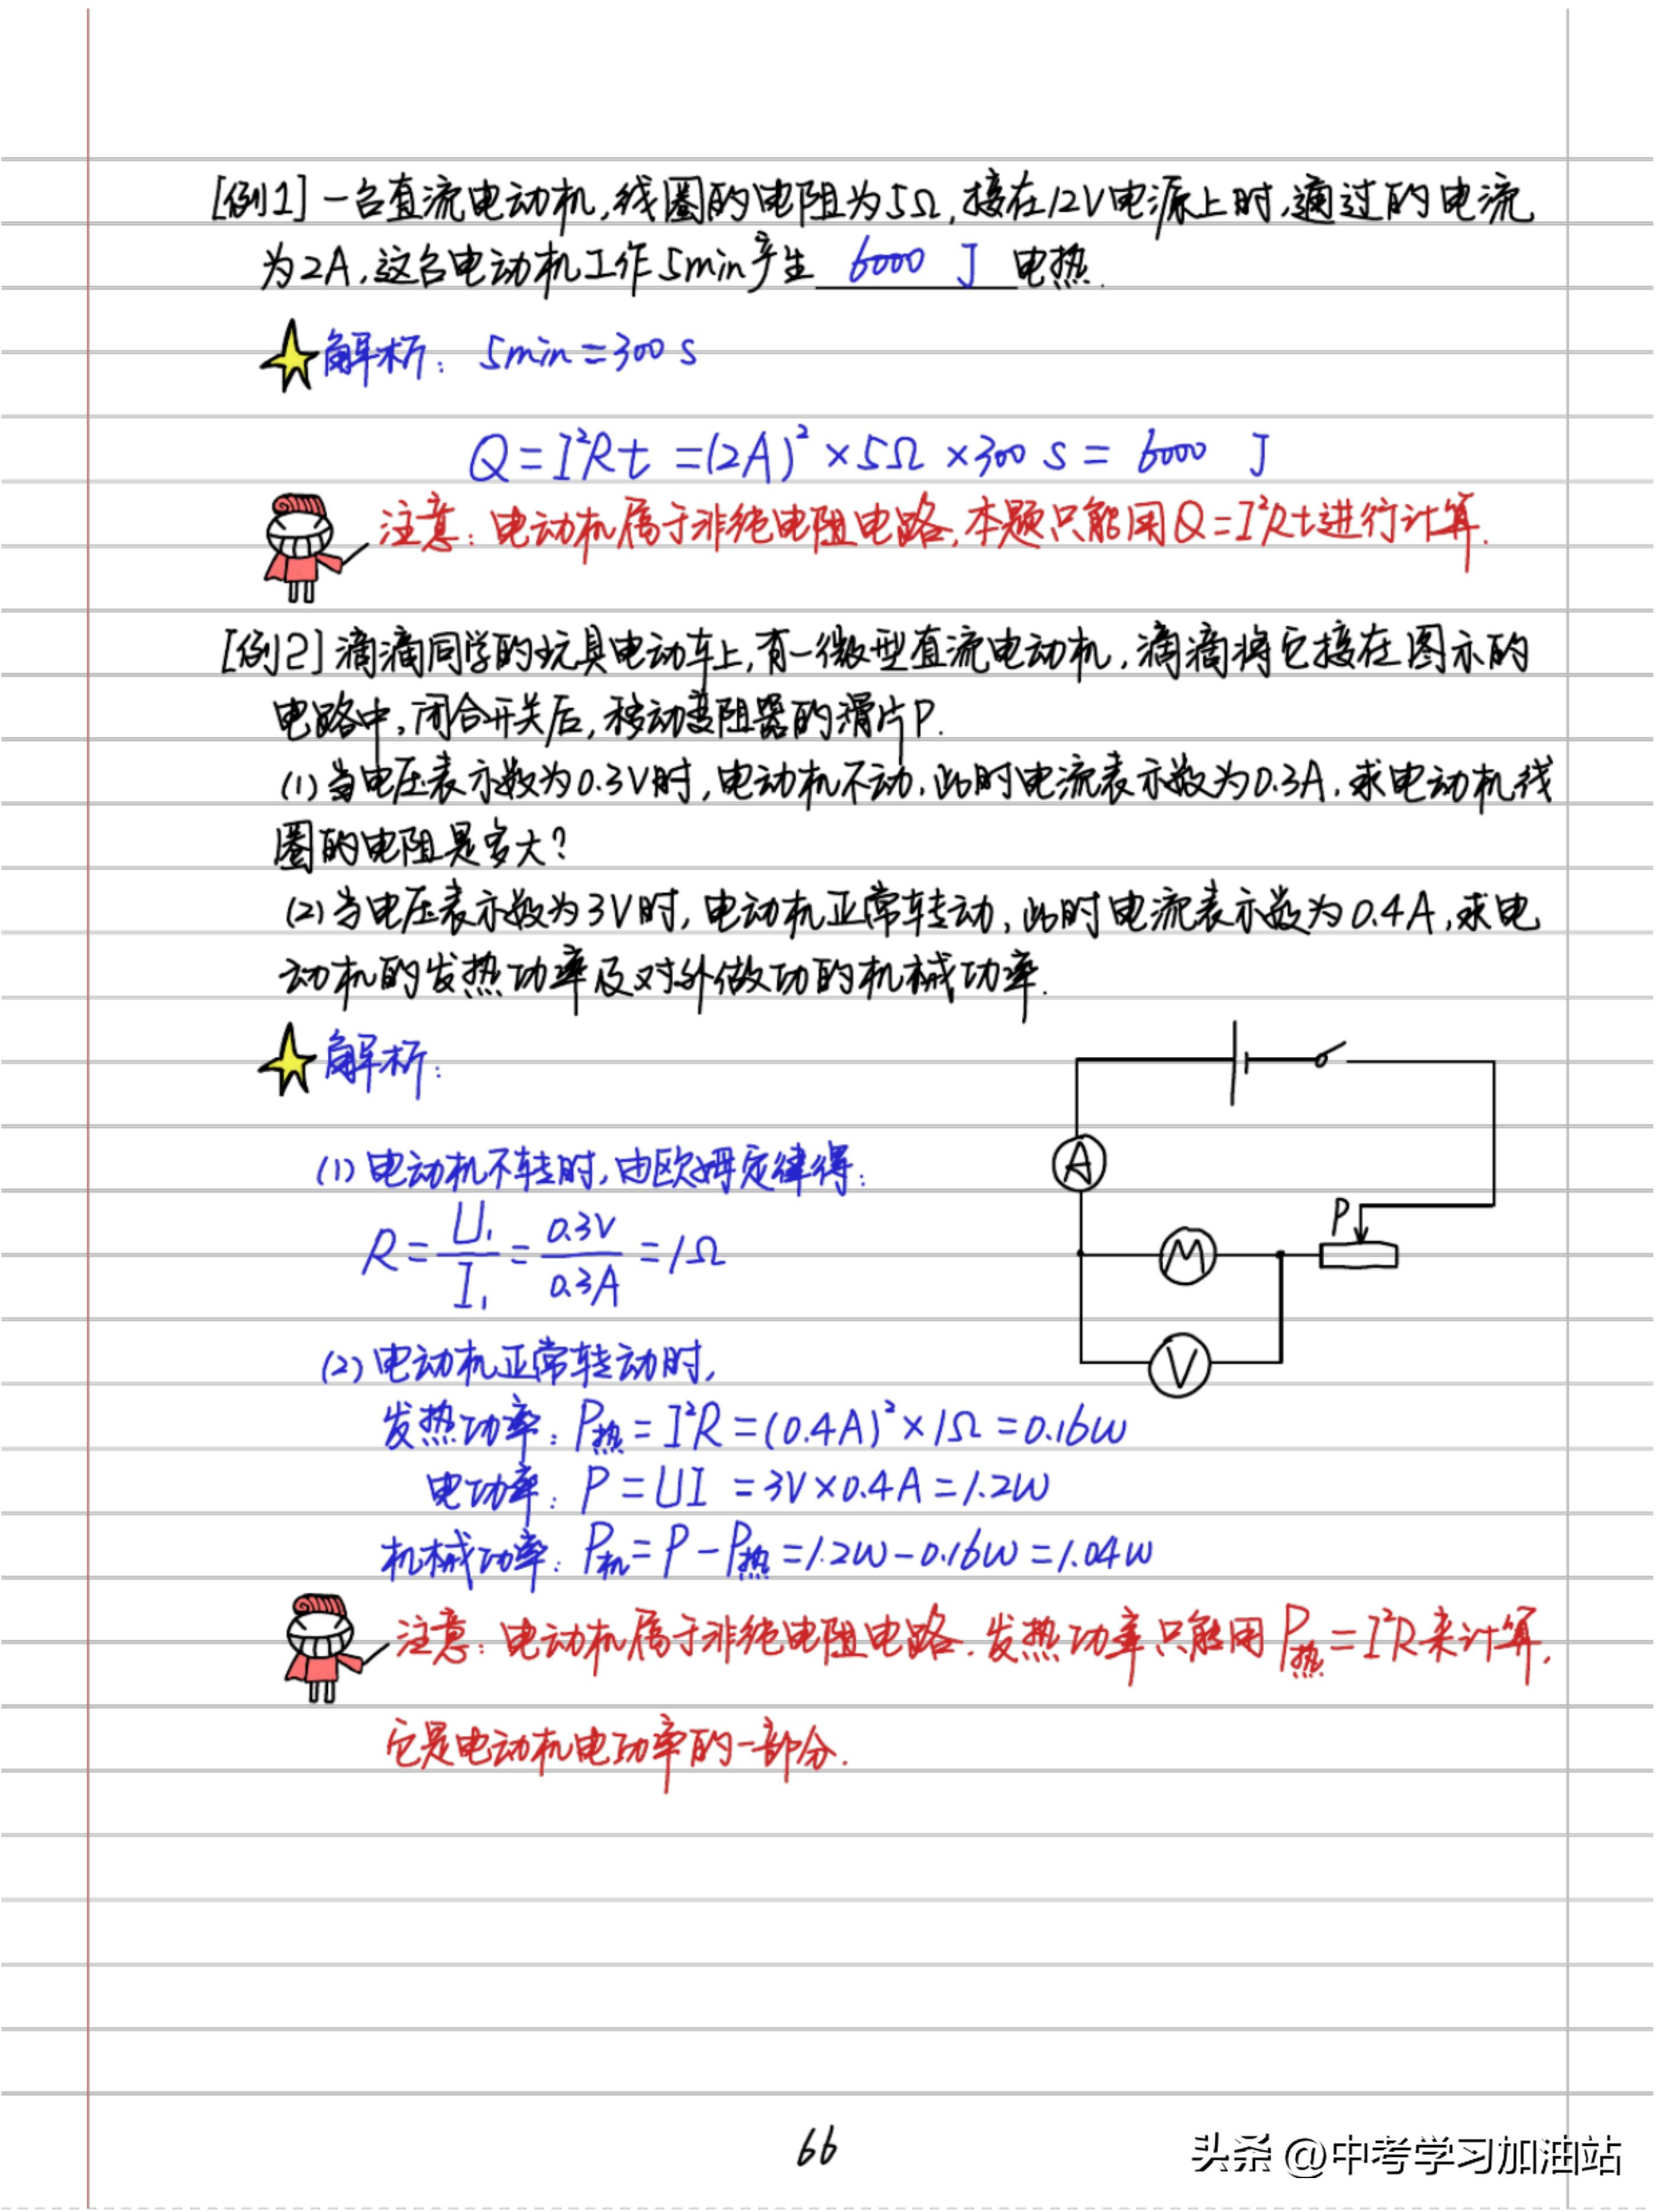 [例1] 一台直流电动机,线圈的电阻为5Ω,接在12V电源上时,通过的电流
为2A,这台电动机工作5min产生 6000 J 电热.
解析: 5min=300 s
Q=I²Rt=(2A)²×5Ω×300 s= 6000 J
注意:电动机属于非纯电阻电路,本题只能用Q=I²Rt进行计算.
[例2] 滴滴同学的玩具电动车上,有一微型直流电动机,滴滴将它接在图示的
电路中,闭合开关后,移动变阻器的滑片P.
(1)当电压表示数为0.3V时,电动机不动,此时电流表示数为0.3A,求电动机线
圈的电阻是多大?
(2)当电压表示数为3V时,电动机正常转动,此时电流表示数为0.4A,求电
动机的发热功率及对外做功的机械功率.
解析:
(1)电动机不转时,由欧姆定律得:
R=U₁/I₁=0.3V/0.3A=1Ω
(2)电动机正常转动时,
发热功率:P热=I²R=(0.4A)²×1Ω=0.16W
电功率:P=UI=3V×0.4A=1.2W
机械功率:P机=P-P热=1.2W-0.16W=1.04W
A
P
M
V
注意:电动机属于非纯电阻电路.发热功率只能用P热=I²R来计算,
它是电动机电功率的一部分.
66
头条 @中考学习加油站